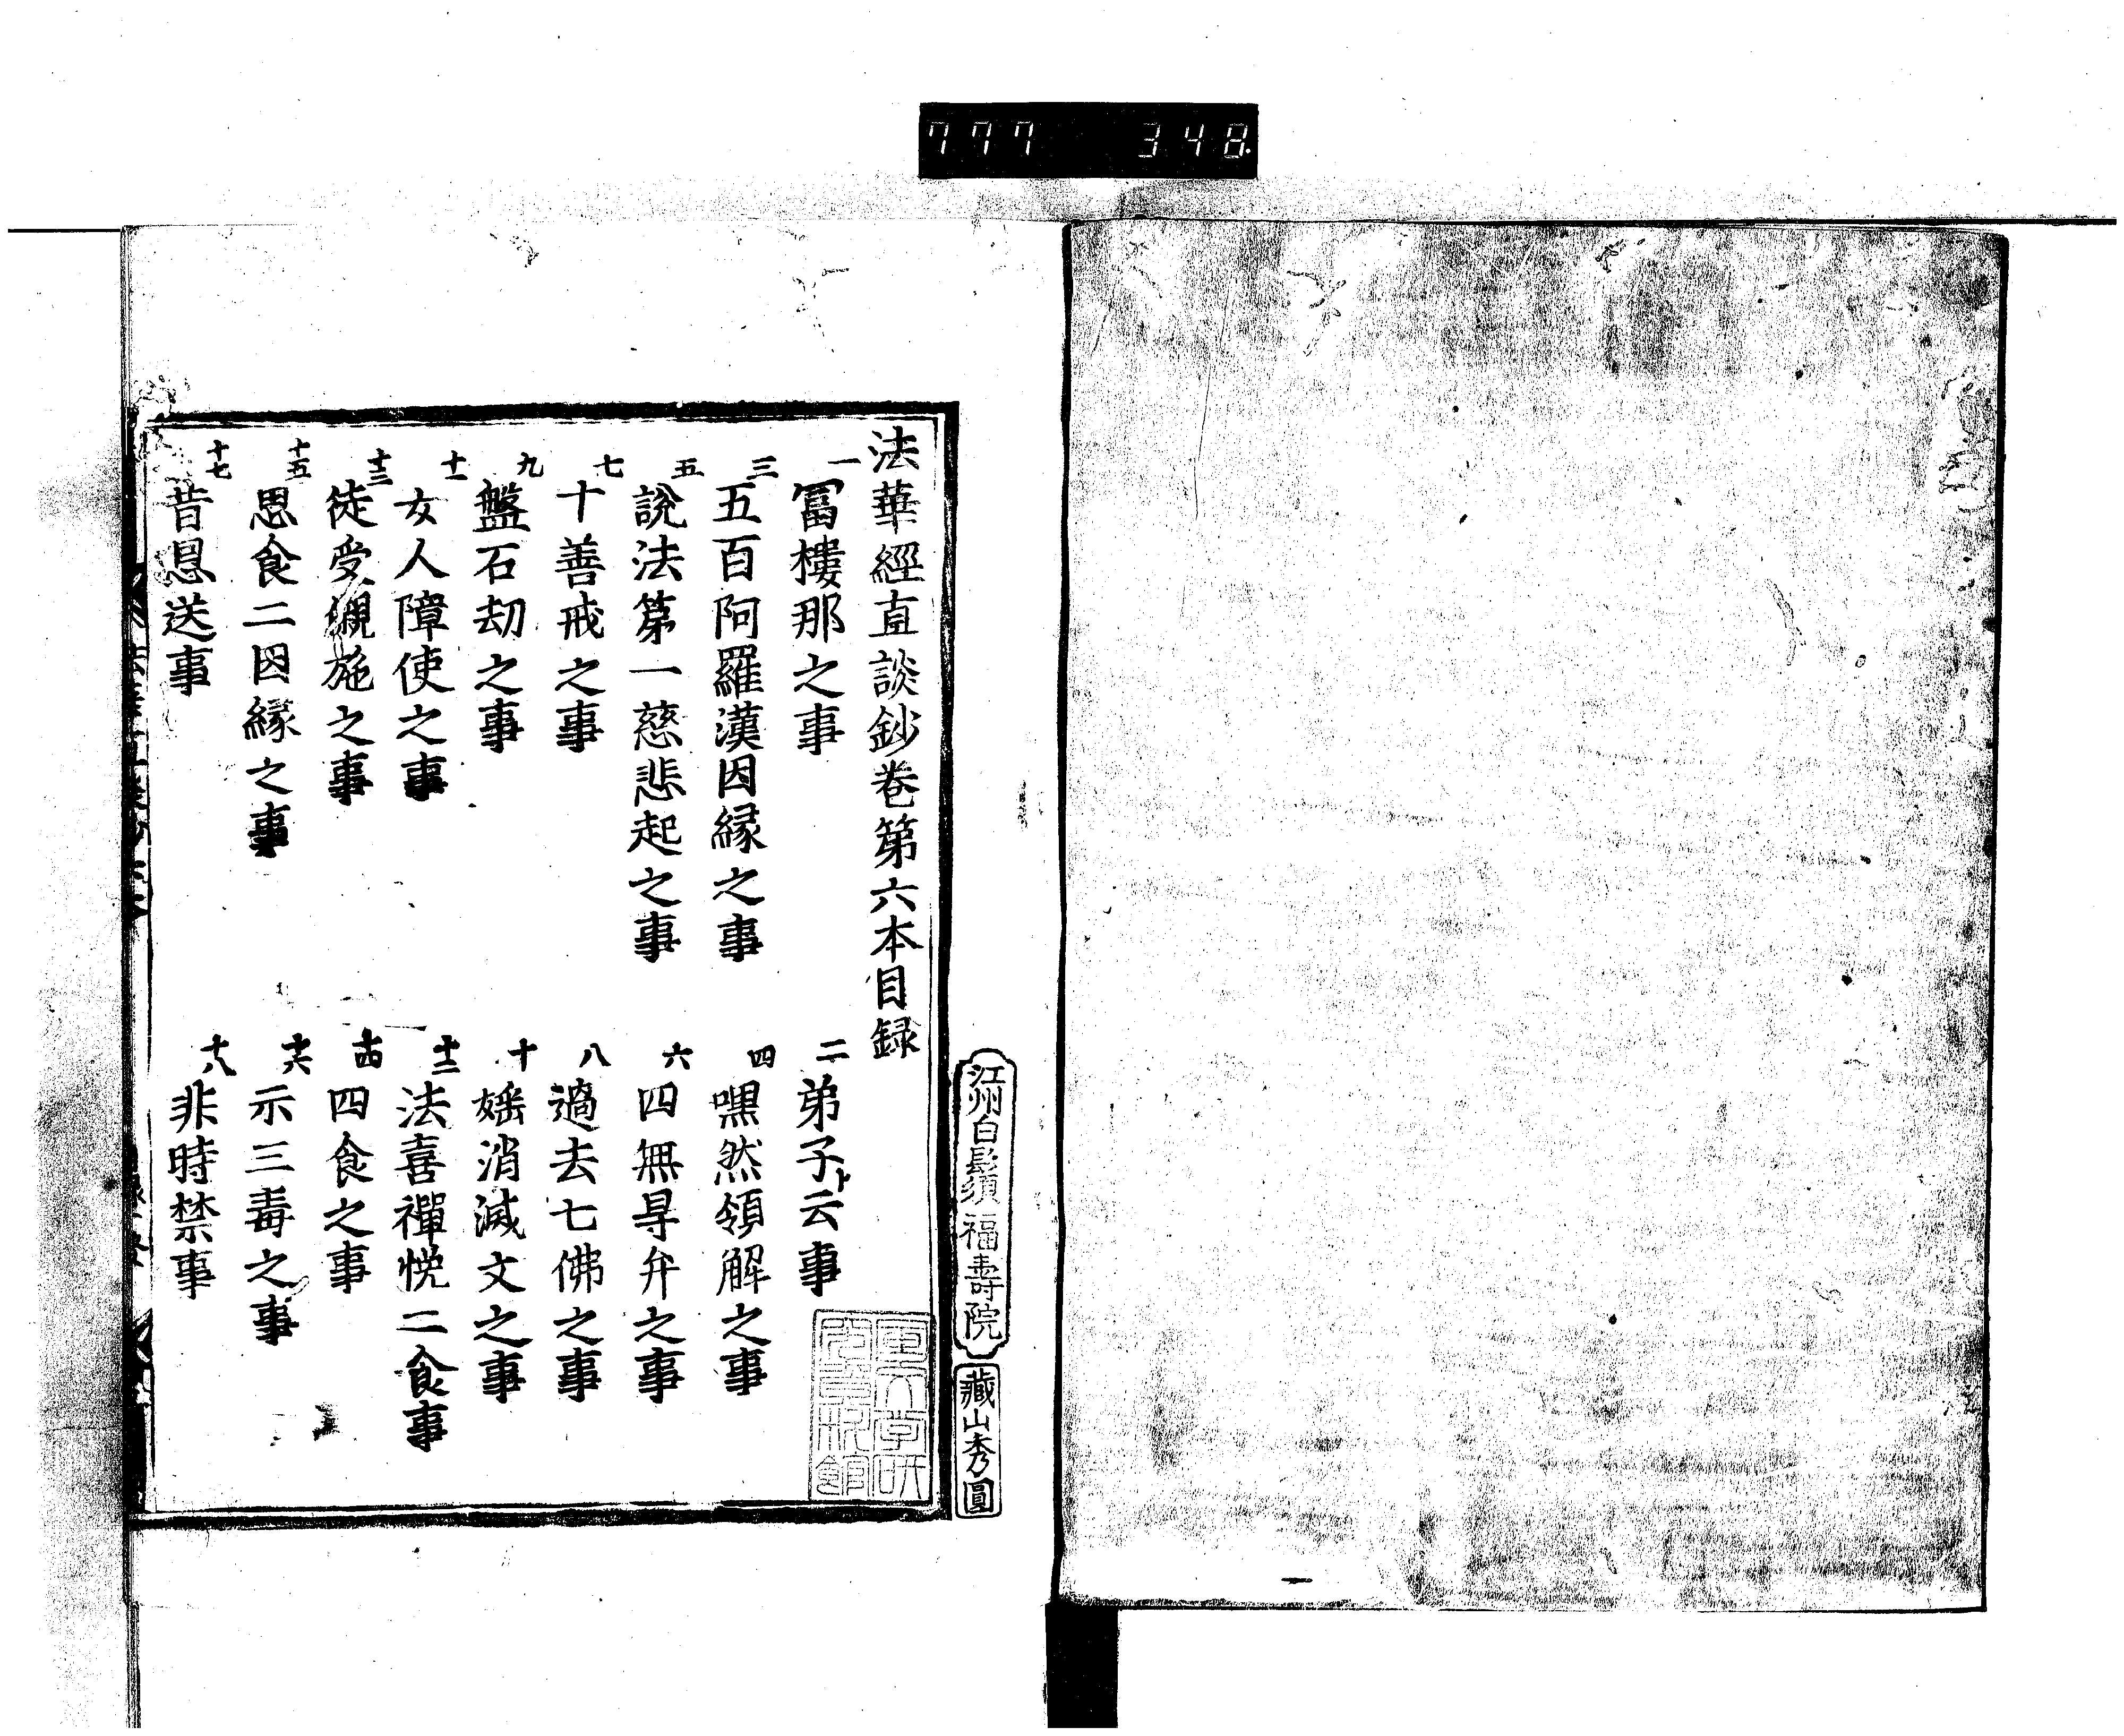 777 348
江州白髭須 福壽院
藏山秀圓
法華經直談鈔卷第六本目録
一 冨樓那之事
二 弟子ト云事
三 五百阿羅漢因縁之事
四 嘿然領解之事
五 說法第一慈悲起之事
六 四無㝵弁之事
七 十善戒之事
八 過去七佛之事
九 盤石劫之事
十 婬消滅文之事
十一 女人障使之事
十二 法喜禪悦二食事
十三 徒受儭施之事
十四 四食之事
十五 思食二因縁之事
十六 示三毒之事
十七 昔恩送事
十八 非時禁事